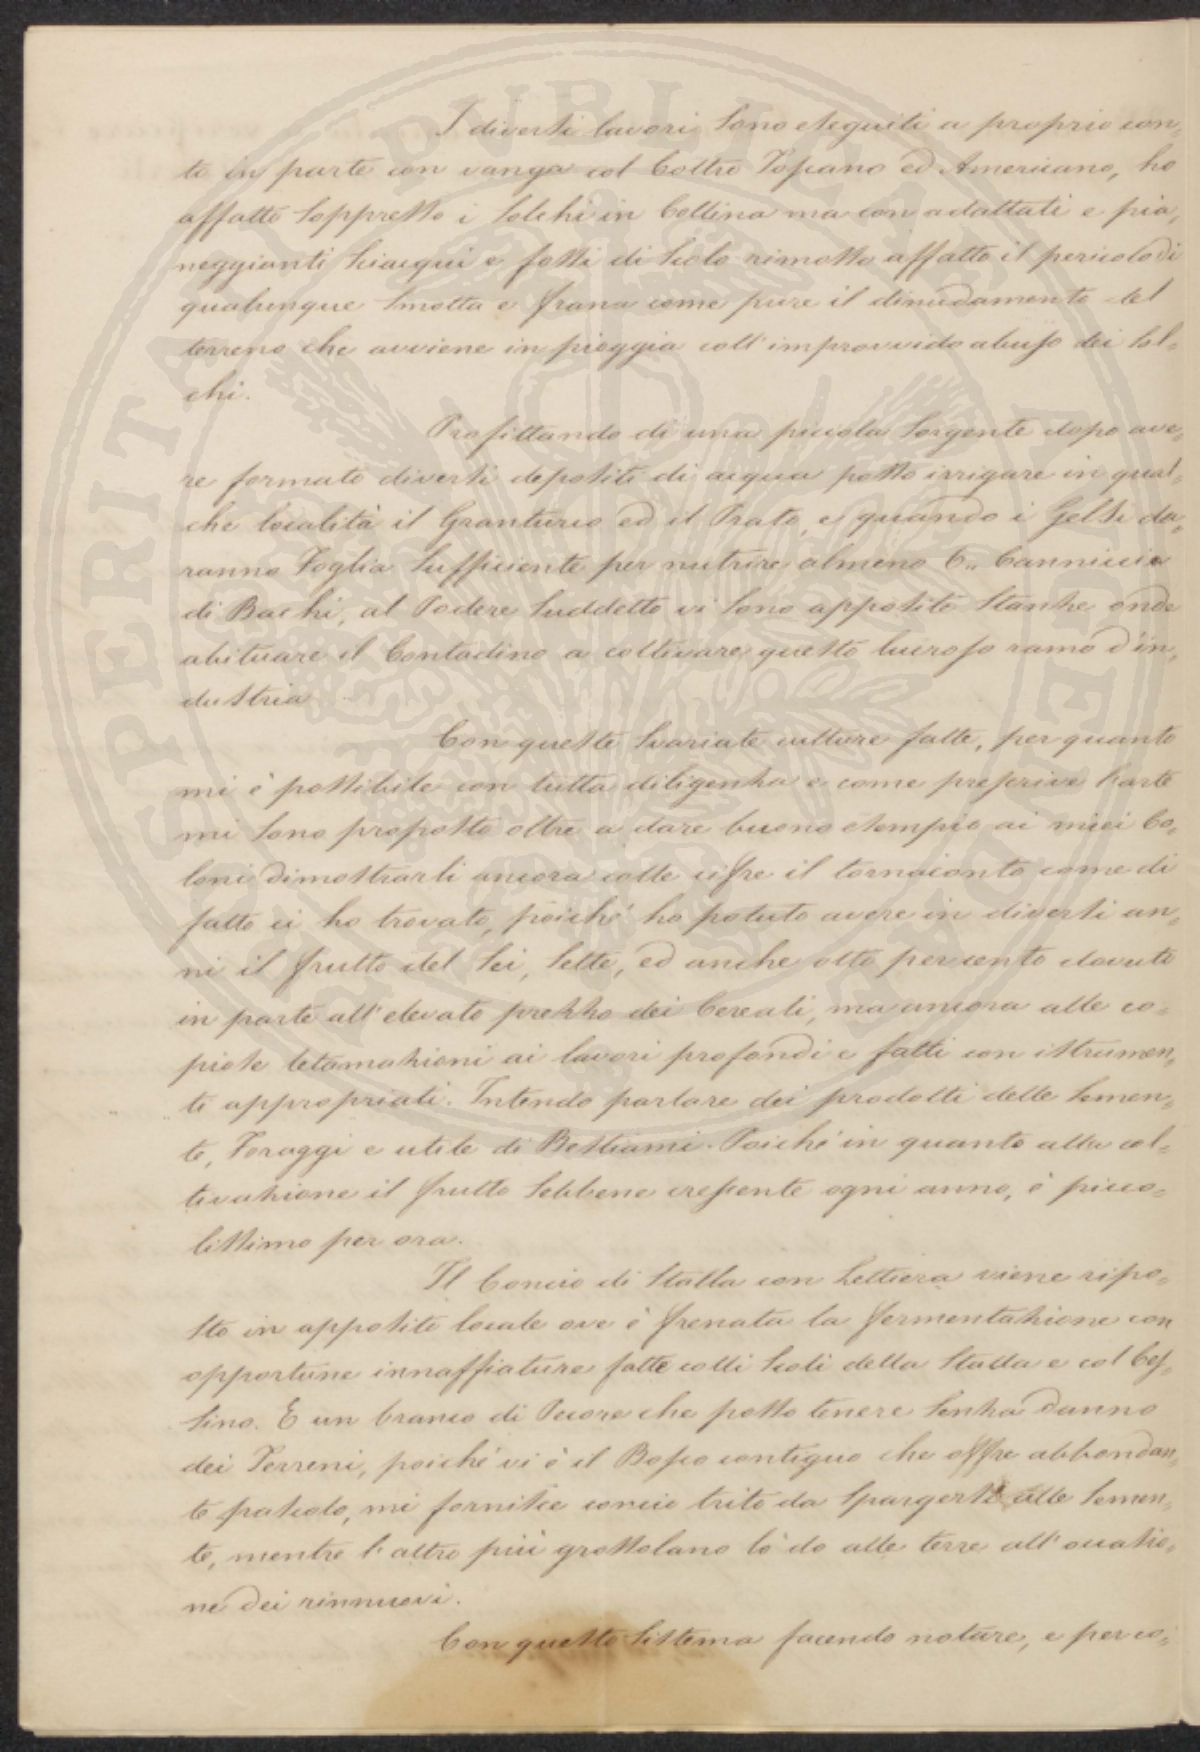 I diversi lavori sono eseguiti a proprio con=
to in parte con vanga col Coltro Toscano ed Americano, ho
affatto soppresso i solchi in Collina ma con adattati e pia=
neggianti sciacqui e fossi di scolo rimosso affatto il pericolo di
qualunque smotta e frana come pure il dinudamento del
terreno che avviene in pioggia coll'improvvido abuso dei sol=
chi.
Profittando di una piccola sorgente dopo ave=
re formato diversi depositi di acqua posso irrigare in qual=
che località il Granturco ed il Prato, e quando i Gelsi da=
ranno Foglia sufficiente per nutrire almeno 6„ Canniccia
di Bachi, al Podere suddetto vi sono apposite stanze onde
abituare il Contadino a coltivare questo lucroso ramo d'in=
dustria.
Con queste svariate culture fatte, per quanto
mi è possibile con tutta diligenza e come prescrive l'arte
mi sono proposto oltre a dare buono esempio ai miei Co=
loni dimostrarli ancora colle cifre il tornaconto come di
fatto ci ho trovato, poiché ho potuto avere in diversi an=
ni il frutto del sei, sette, ed anche otto per cento dovuto
in parte all'elevato prezzo dei Cereali, ma ancora alle co=
piose letamazioni ai lavori profondi e fatti con istrumen=
ti appropriati. Intendo parlare dei prodotti delle semen=
te, Foraggi e utile di Bestiami. Poiché in quanto alla col=
tivazione il frutto sebbene crescente ogni anno, è picco=
lissimo per ora.
Il Concio di stalla con Lettiera viene ripo=
sto in apposito locale ove è frenata la fermentazione con
opportune innaffiature fatte colli scoli della stalla e col Ces=
sino. E un branco di Pecore che posso tenere senza danno
dei Terreni, poiché vi è il Bosco contiguo che offre abbondan=
te pascolo, mi fornisce concio trito da spargersi alle semen=
te, mentre l'altro più grossolano lò do alle terre all'occasio=
ne dei rinnuovi.
Con questo sistema facendo notare, e per co=
SPERITAT PUBLICAE AUGENDAE